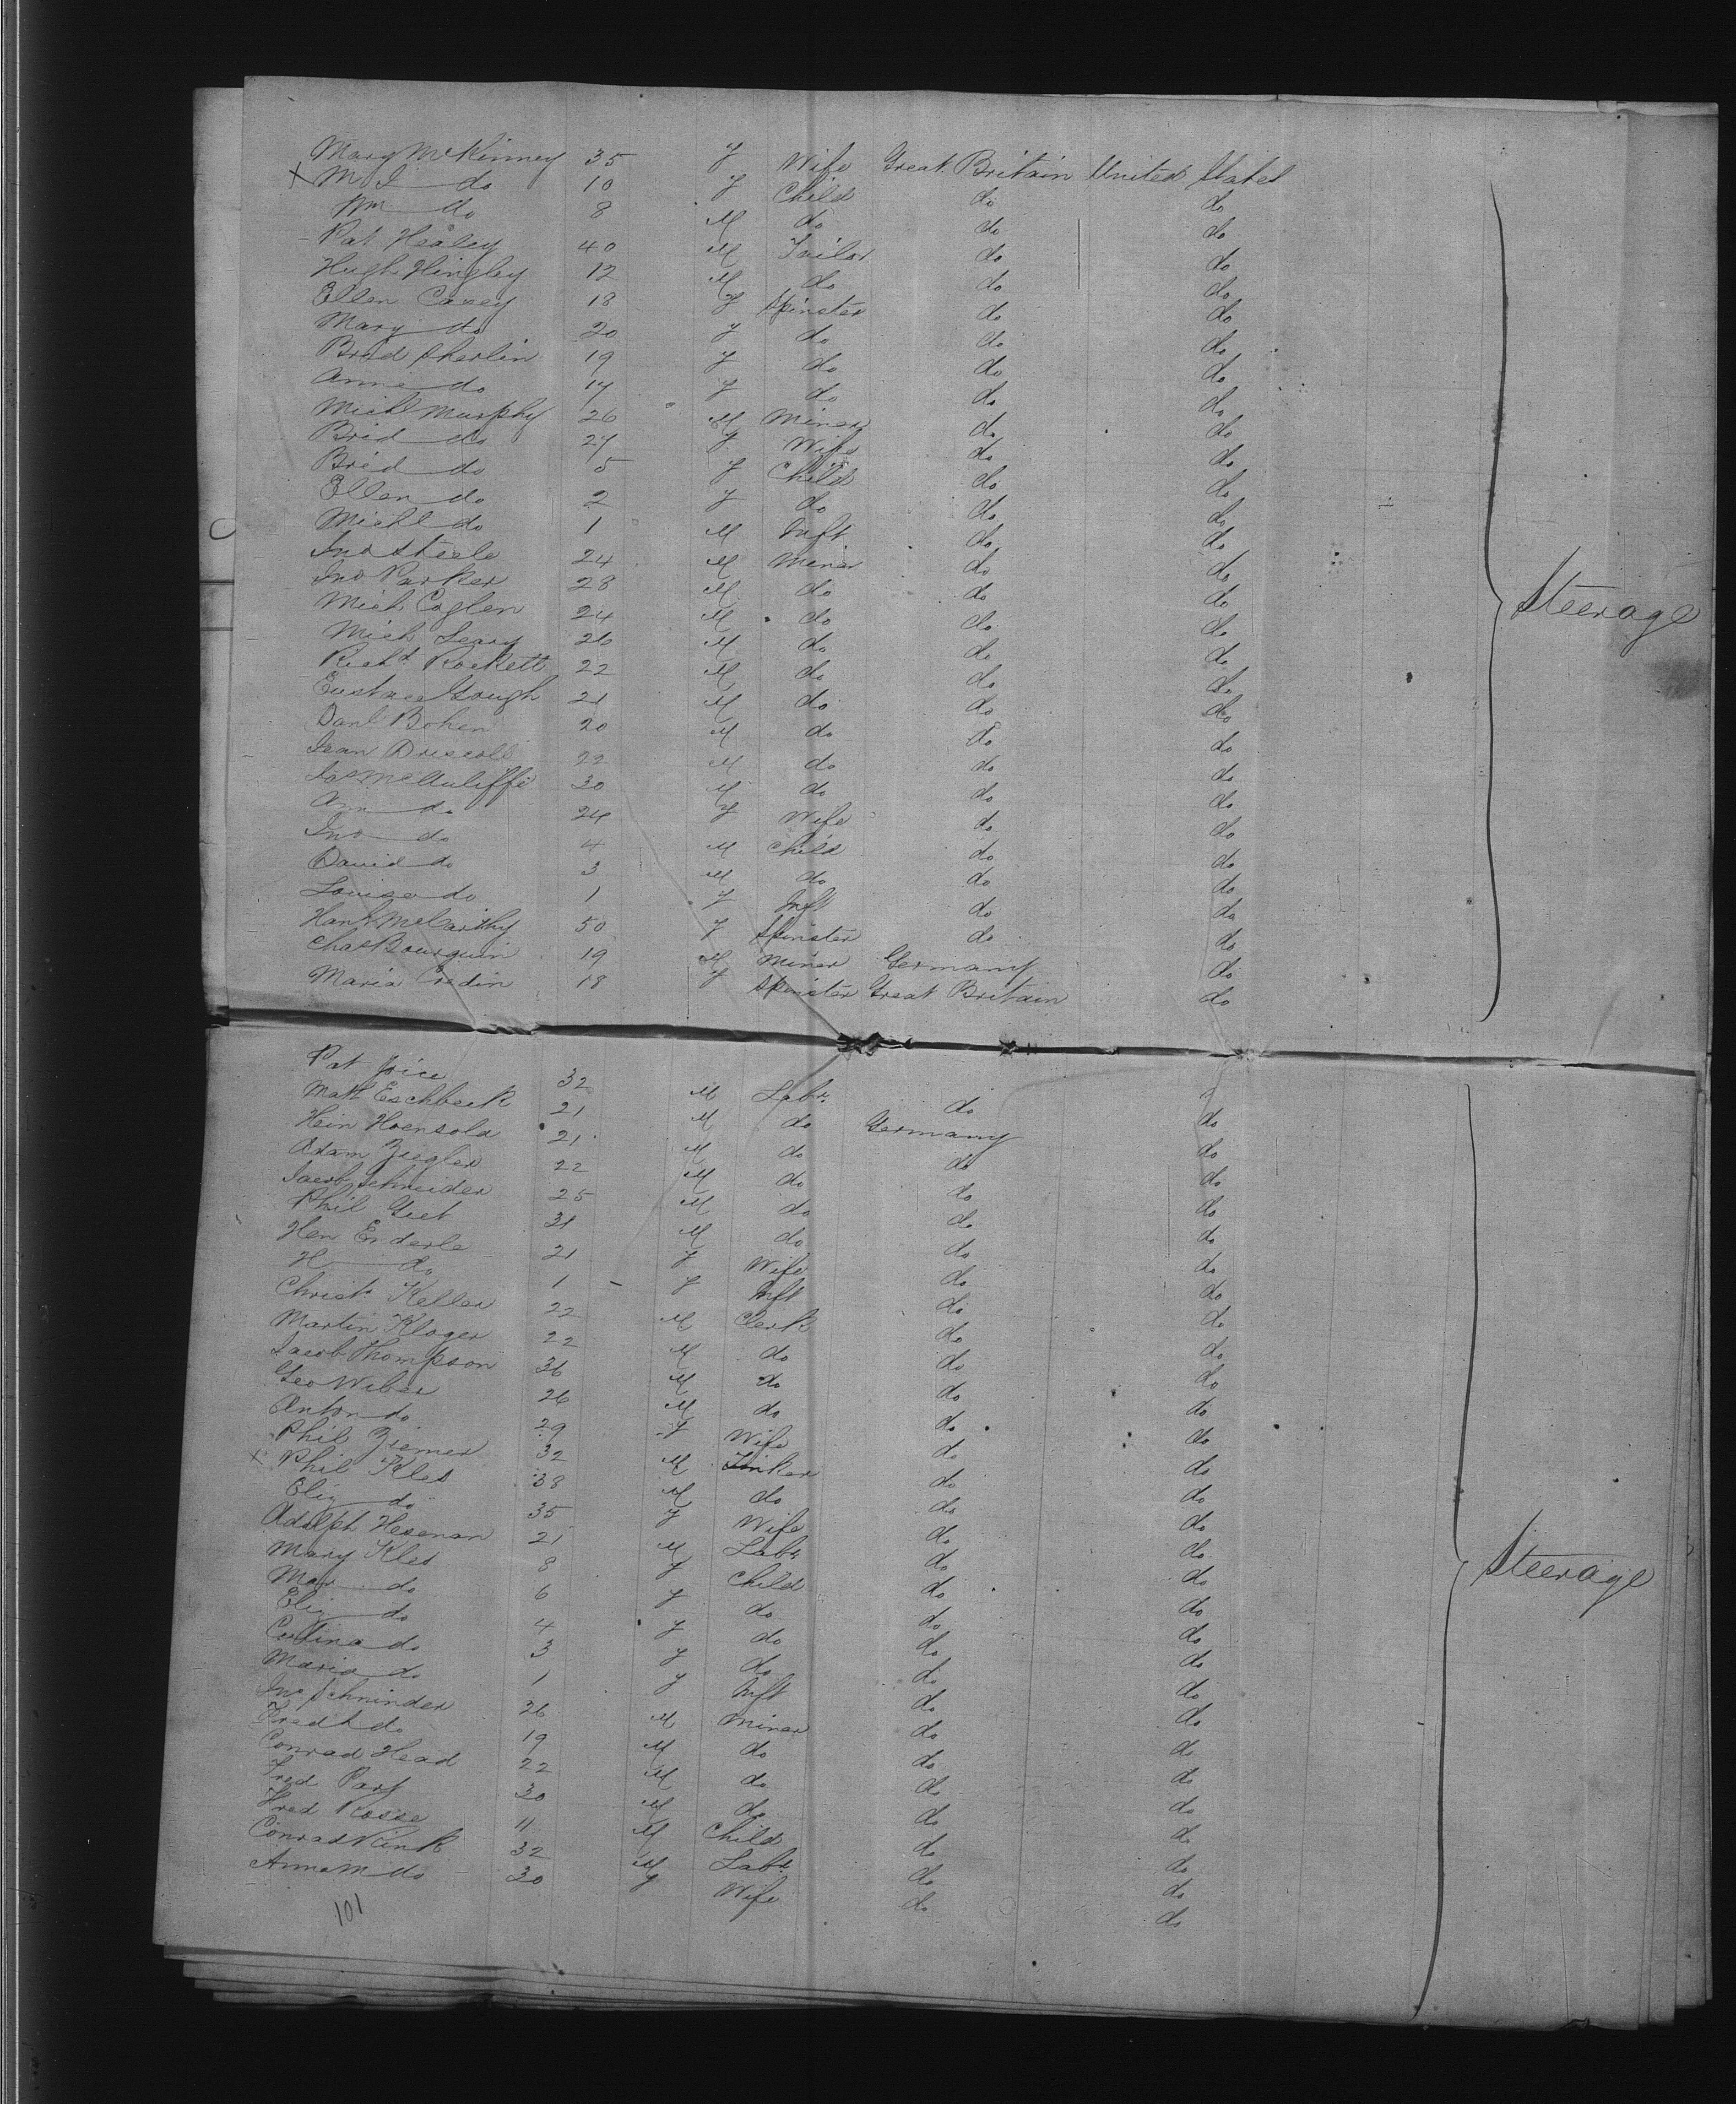 Mary McKinney 35 F Wife Great Britain United States
x M J do 10 F Child do do
Wm do 8 M do do do
Pat Healey 40 M Tailor do do
Hugh Hingley 12 M do do do
Ellen Casey 18 F Spinster do do
Mary do 20 F do do do
Brid Sherlin 19 F do do do
Anne do 17 F do do do
Michl Murphy 26 M Miner do do
Brid do 27 F Wife do do
Brid do 5 F Child do do
Ellen do 2 F do do do
Michl do 1 M Inft do do
Jno Steele 24 M Miner do do
Jno Parker 28 M do do do
Steerage
Mich Coglen 24 M do do do
Mich Leary 26 M do do do
Richd Rockett 22 M do do do
Eustace Gough 21 M do do do
Danl Bohen 20 M do do do
Driscoll 22 M do do do
Jas McAuliffe 30 M do do do
Ann do 24 F Wife do do
Jno do 4 M Child do do
David do 3 M do do do
Louisa do 1 F Inft do do
Hanh McCarthy 50 F Spinster do do
Chas Bourguin 19 M Miner Germany do
Maria Credin 18 F Spinster Great Britain do
Pat Joice 32 M Labr do do
Math Eschbeck 21 M do Germany do
Hein Hoensola 21 M do do do
Adam Ziegler 22 M do do do
Jacob Schneider 25 M do do do
Phil 31 M do do do
Hen Enderle 21 F Wife do do
H do 1 F Inft do do
Christn Keller 22 M Clerk do do
Martin Kloger 22 M do do do
Jacob Thompson 36 M do do do
Geo Wiber 26 M do do do
Anton do 29 F Wife do do
Phil Ziemer 32 M Tinker do do
x Phil Kles 38 M do do do
Eliz do 35 F Wife do do
Adolph Hesenan 21 M Labr do do
Mary Kles 8 F Child do do
Steerage
Mar do 6 F do do do
Eliz do 4 F do do do
do 3 F do do do
Maria do 1 F Inft do do
Jno Schninder 26 M Miner do do
Fredk do 19 M do do do
Conrad Head 22 M do do do
Fred 30 M do do do
Fred Rosse 11 M Child do do
Conrad Rink 32 M Labr do do
Anna M do 30 F Wife do do
101